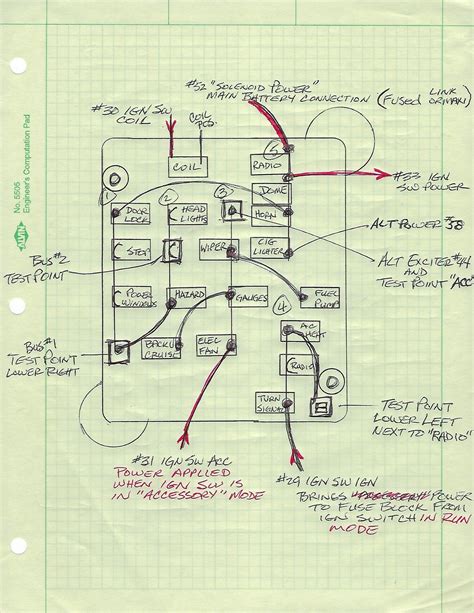 No. 5506
Engineer's Computation Pad
ALVIN
#52 "SOLENOID POWER"
MAIN BATTERY CONNECTION (FUSED LINK
OR MAXI)
#30 IGN SW
COIL
COIL
POS.
COIL
5
RADIO
#33 IGN
SW POWER
DOME
1
2
3
DOOR
LOCK
HEAD
LIGHTS
HORN
ALT POWER #38
BUS #2
TEST POINT
STOP
WIPER
CIG
LIGHTER
ALT EXCITER #44
AND
TEST POINT "ACC"
POWER
WINDOWS
HAZARD
GAUGES
4
FUEL
PUMP
BUS #1
TEST POINT
LOWER RIGHT
BACKUP
CRUISE
ELEC
FAN
A/C
HEAT
RADIO
TURN
SIGNAL
TEST POINT
LOWER LEFT
NEXT TO "RADIO"
#31 IGN SW ACC
POWER APPLIED
WHEN IGN SW IS
IN "ACCESSORY" MODE
#29 IGN SW IGN
BRINGS POWER
TO FUSE BLOCK FROM
IGN SWITCH IN RUN
MODE